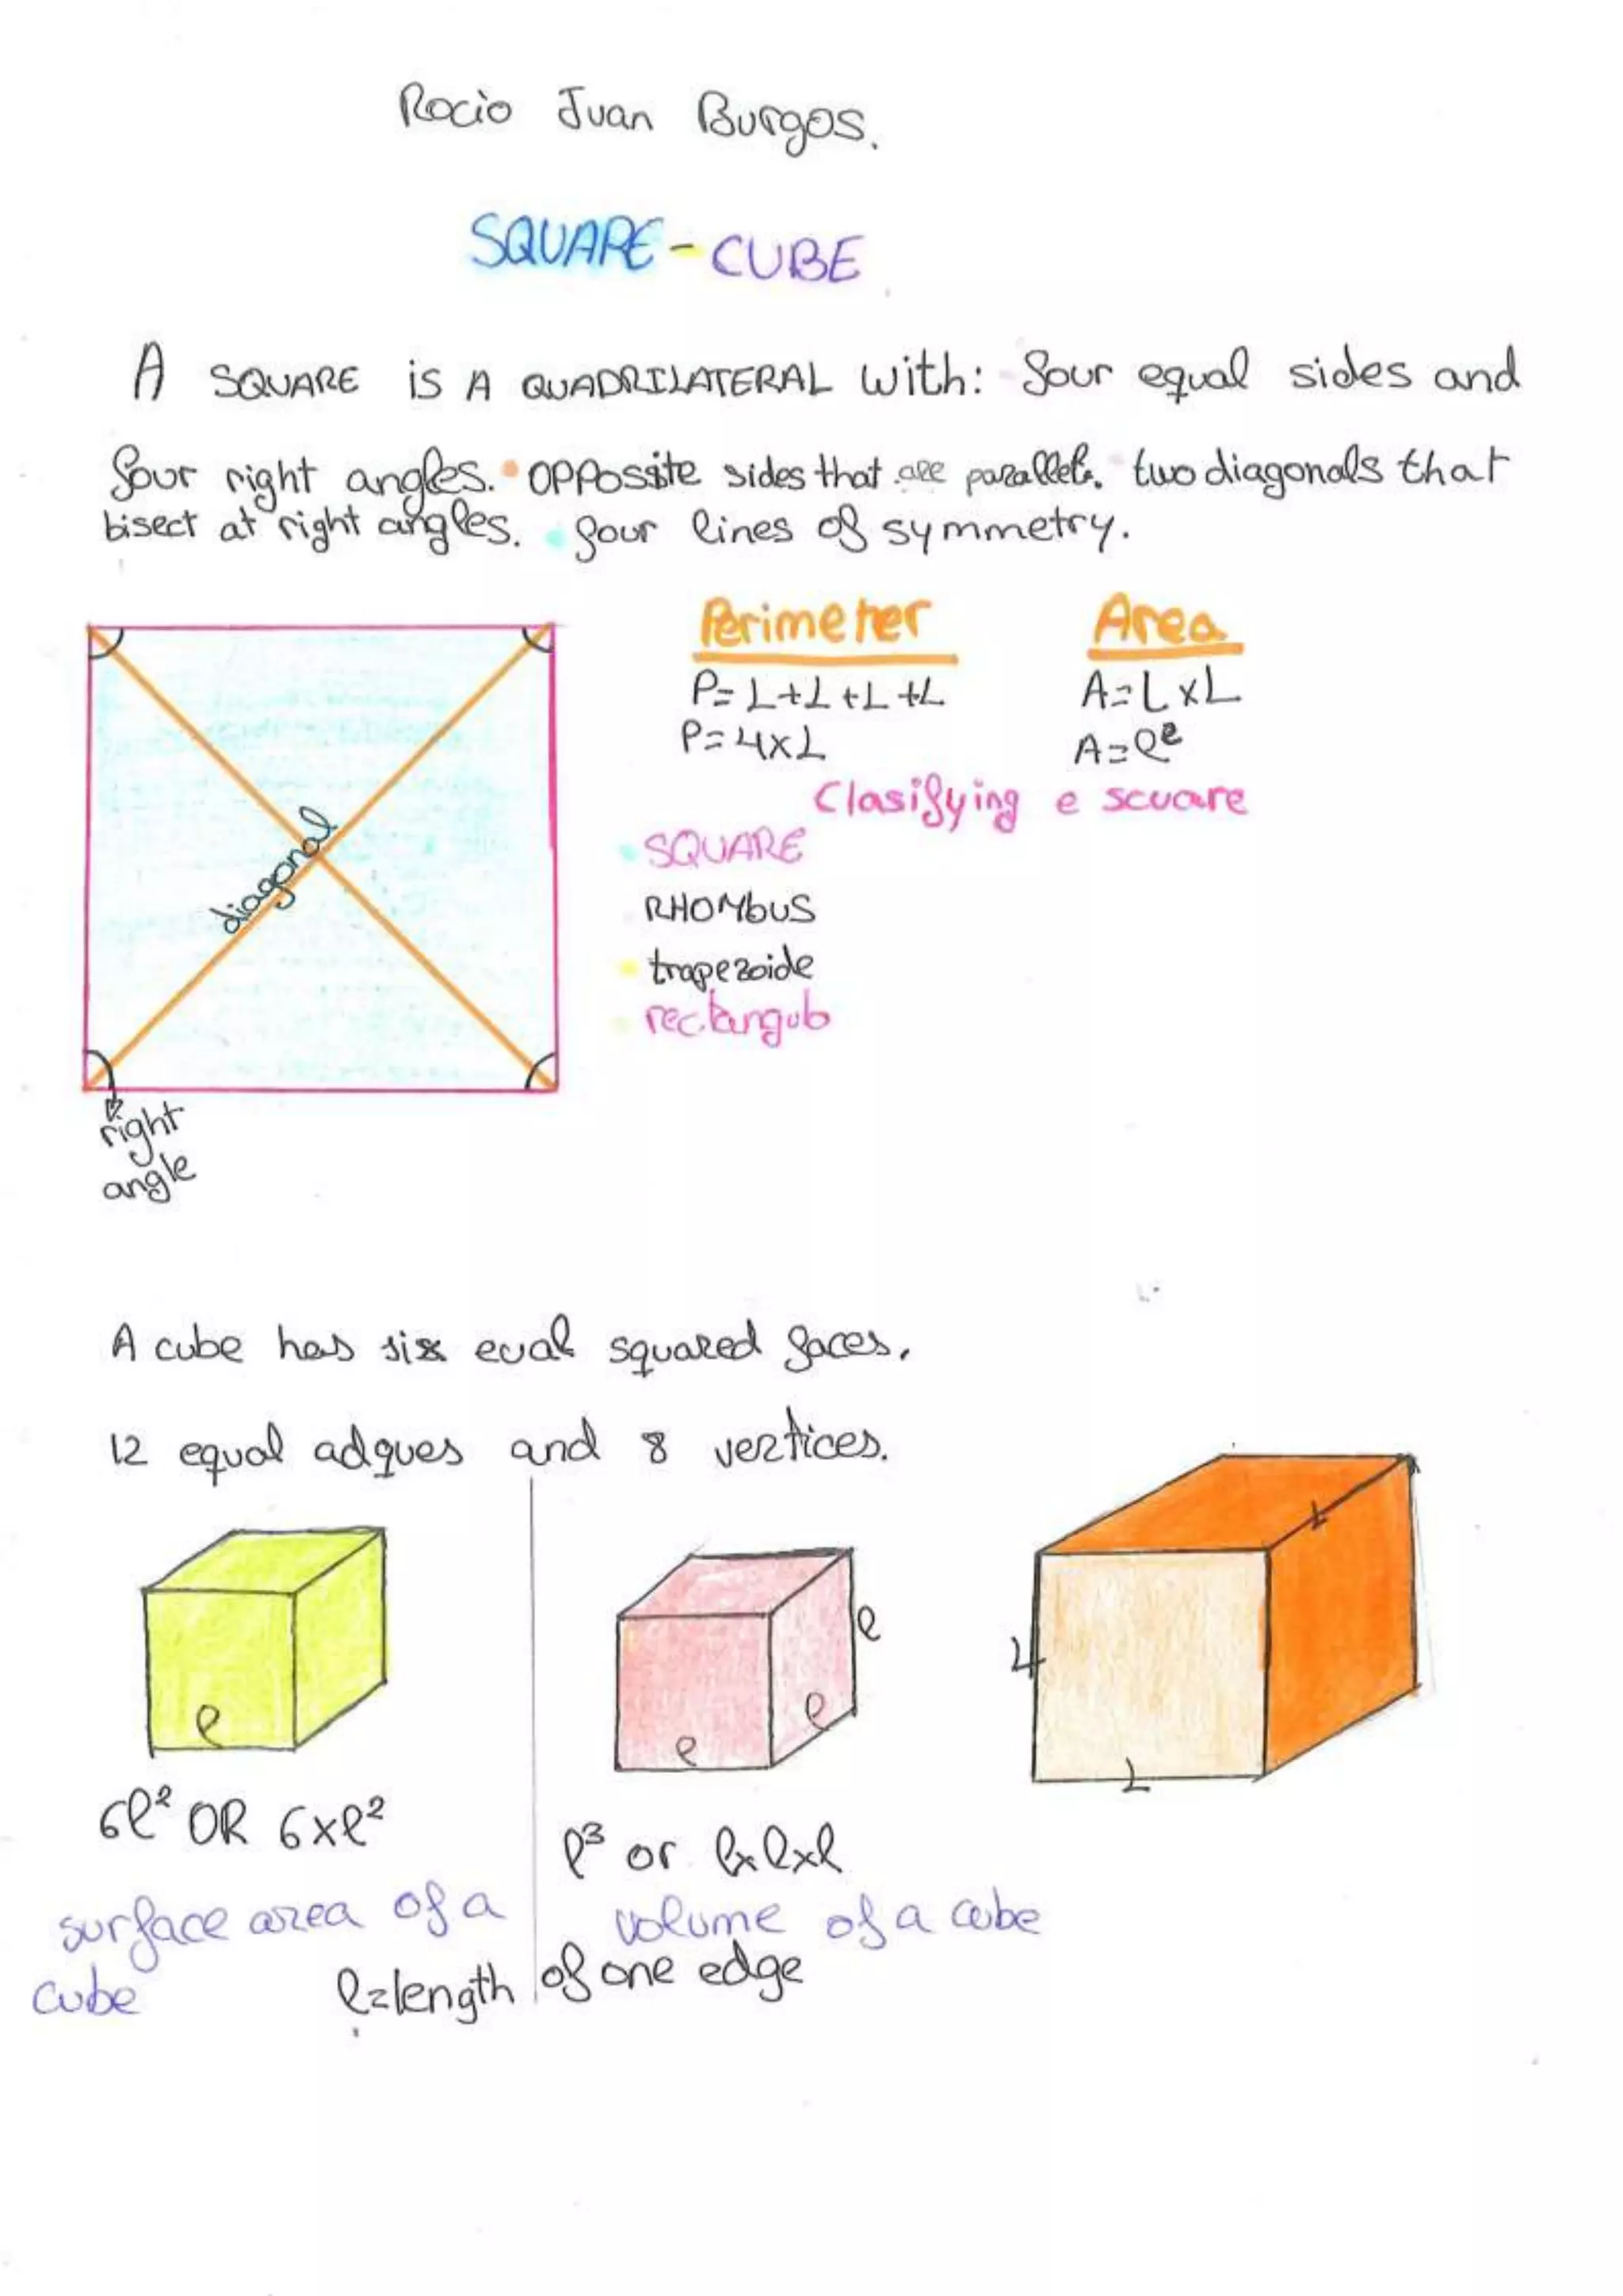 Rocio Juan Burgos.
SQUARE - CUBE
A SQUARE is A QUADRILATERAL with: four equal sides and
four right angles. • OPPOSsite sides that are parallels. two diagonals that
bisect at right angles. • four lines of symmetry.
Perimeter
P= L+L+L+L
P=4xL
Area
A=LxL
A=l²
Clasifying e scuare
• SQUARE
RHOMbUS
• trapezoide
• rectangub
diagonal
right
angle
A cube has six eual squared faces.
12 equal adques and 8 vertices.
l
6l² OR 6xl²
surface area of a
cube
l
l
l
l³ or lxlxl
volume of a cube
l=length of one edge
L
L
L